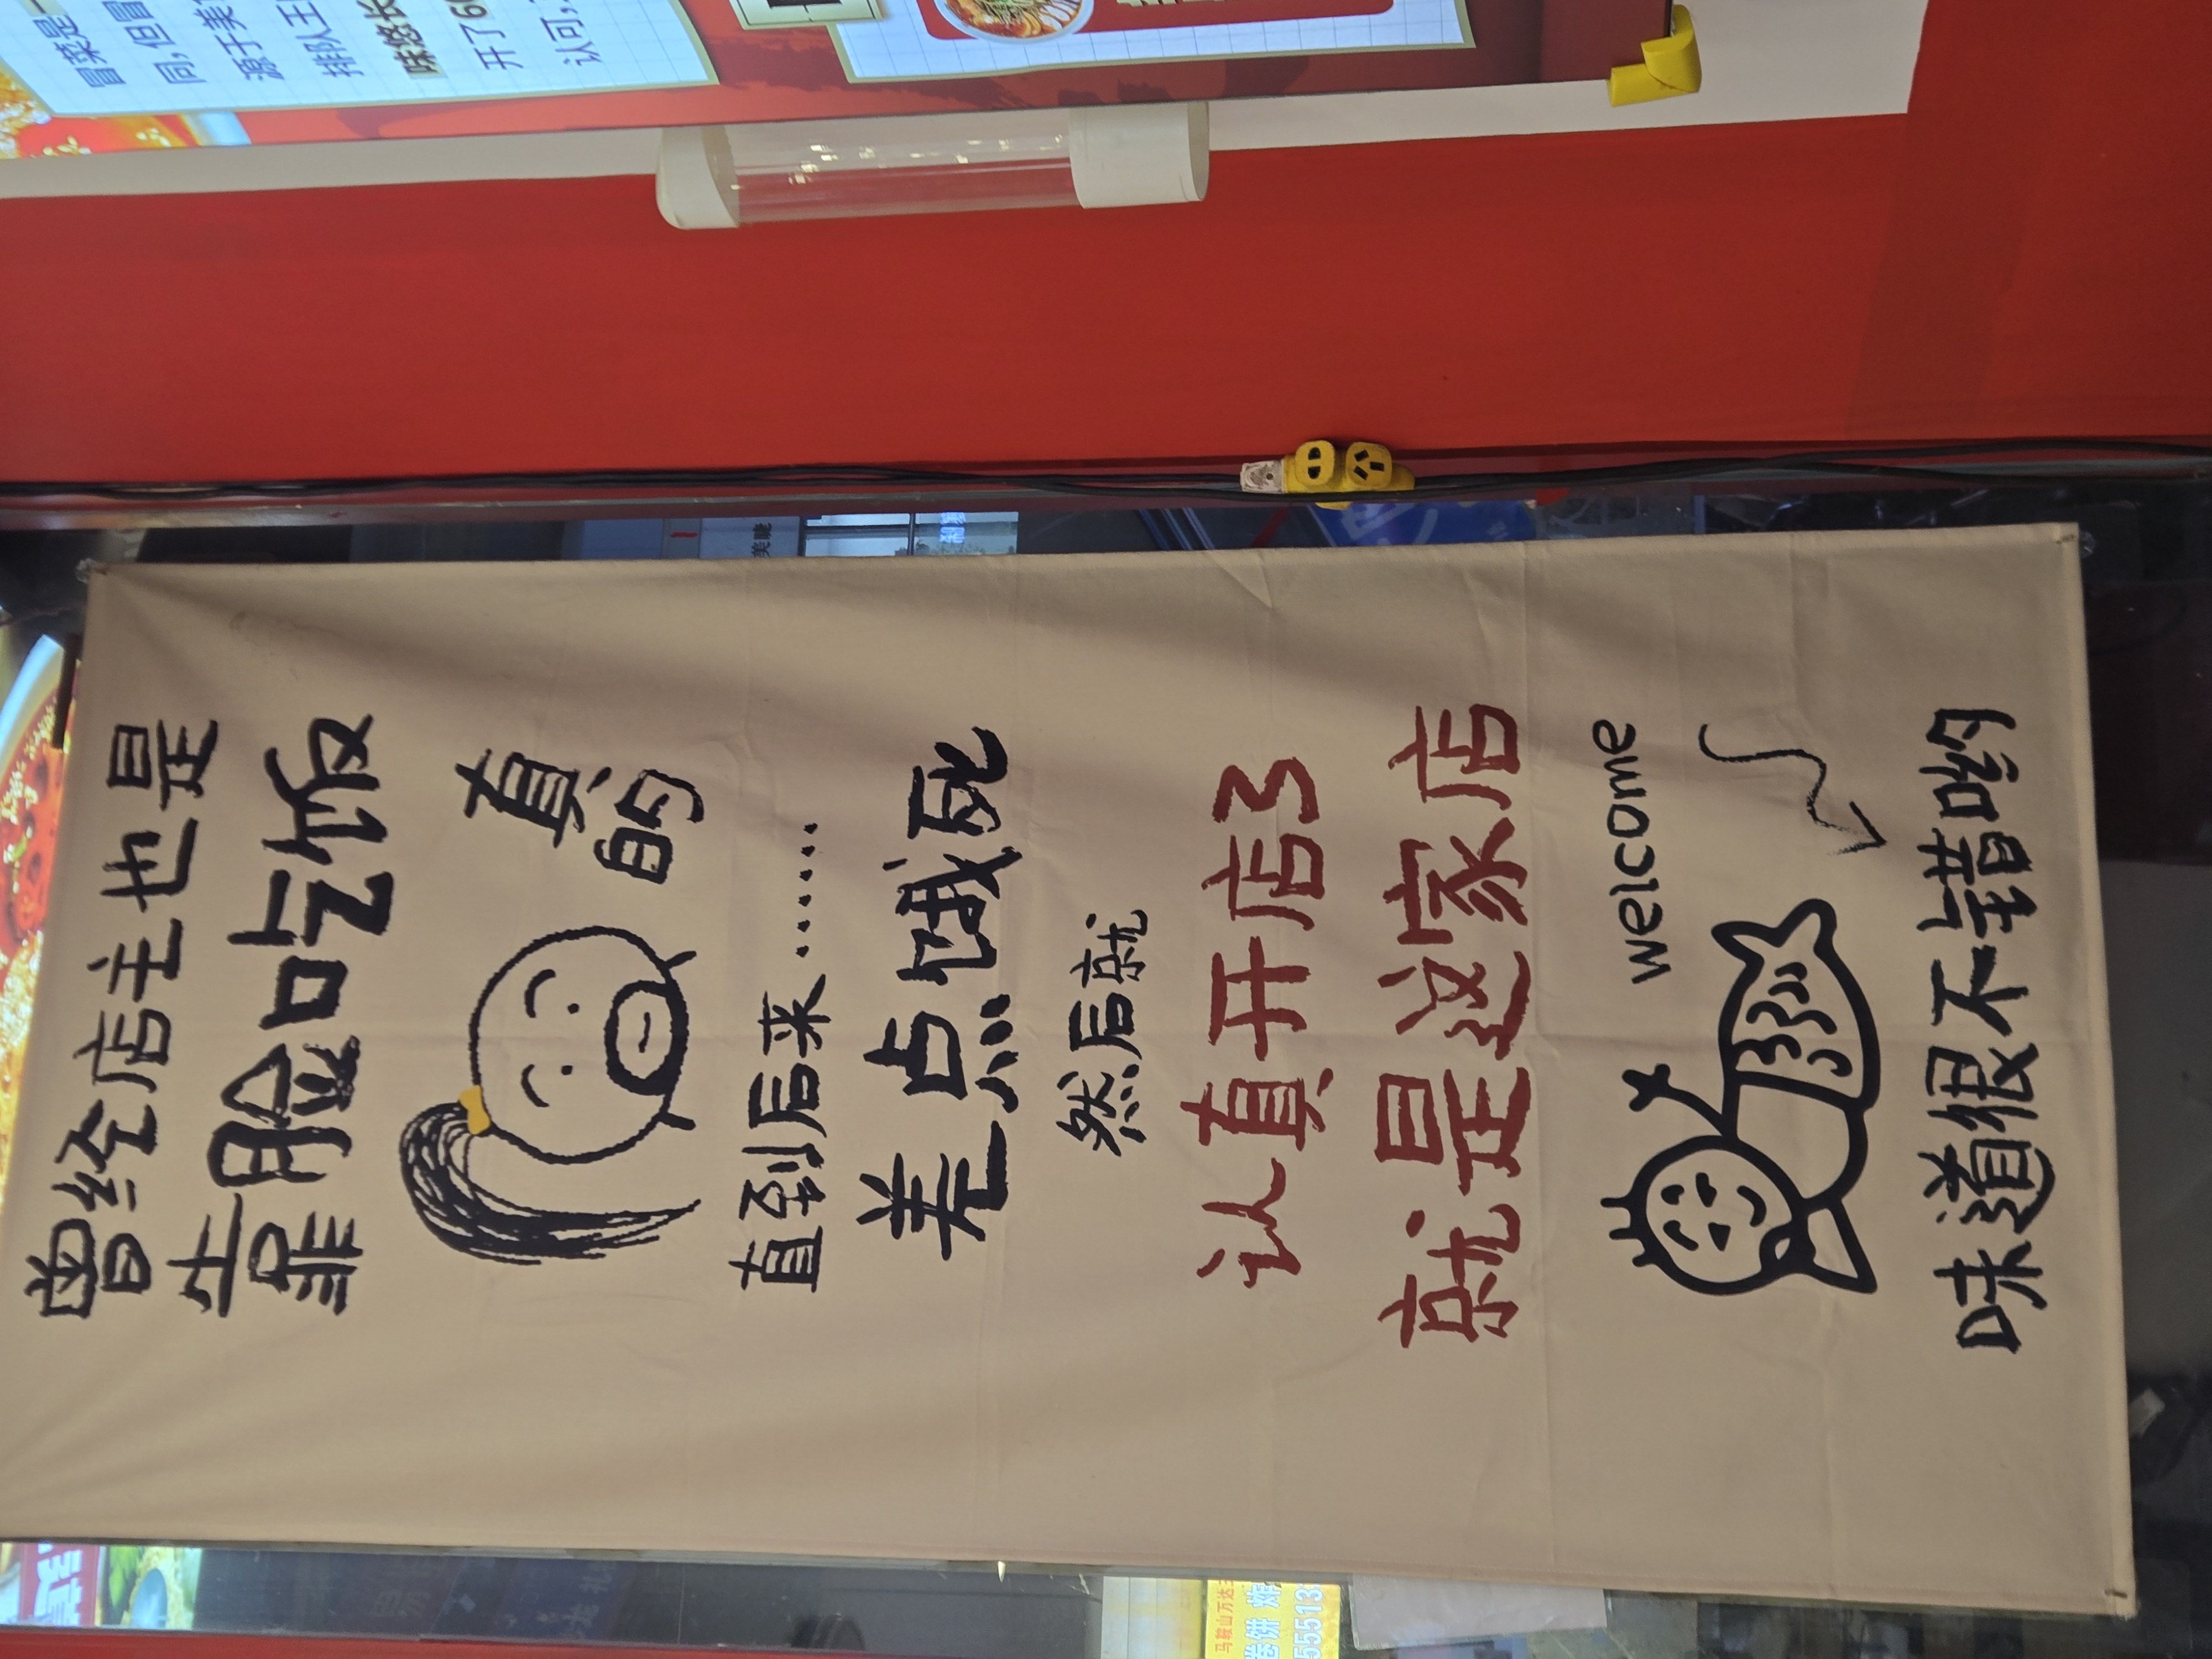 曾经店主也是
靠脸吃饭
真的
直到后来……
差点饿死
然后就
认真开店了
就是这家店
welcome
味道很不错哟
冒菜是
同,但冒
源于美
排队王
味悠长
开了6
认可,
美睫
马鞍山万达
卷饼 炸
555513